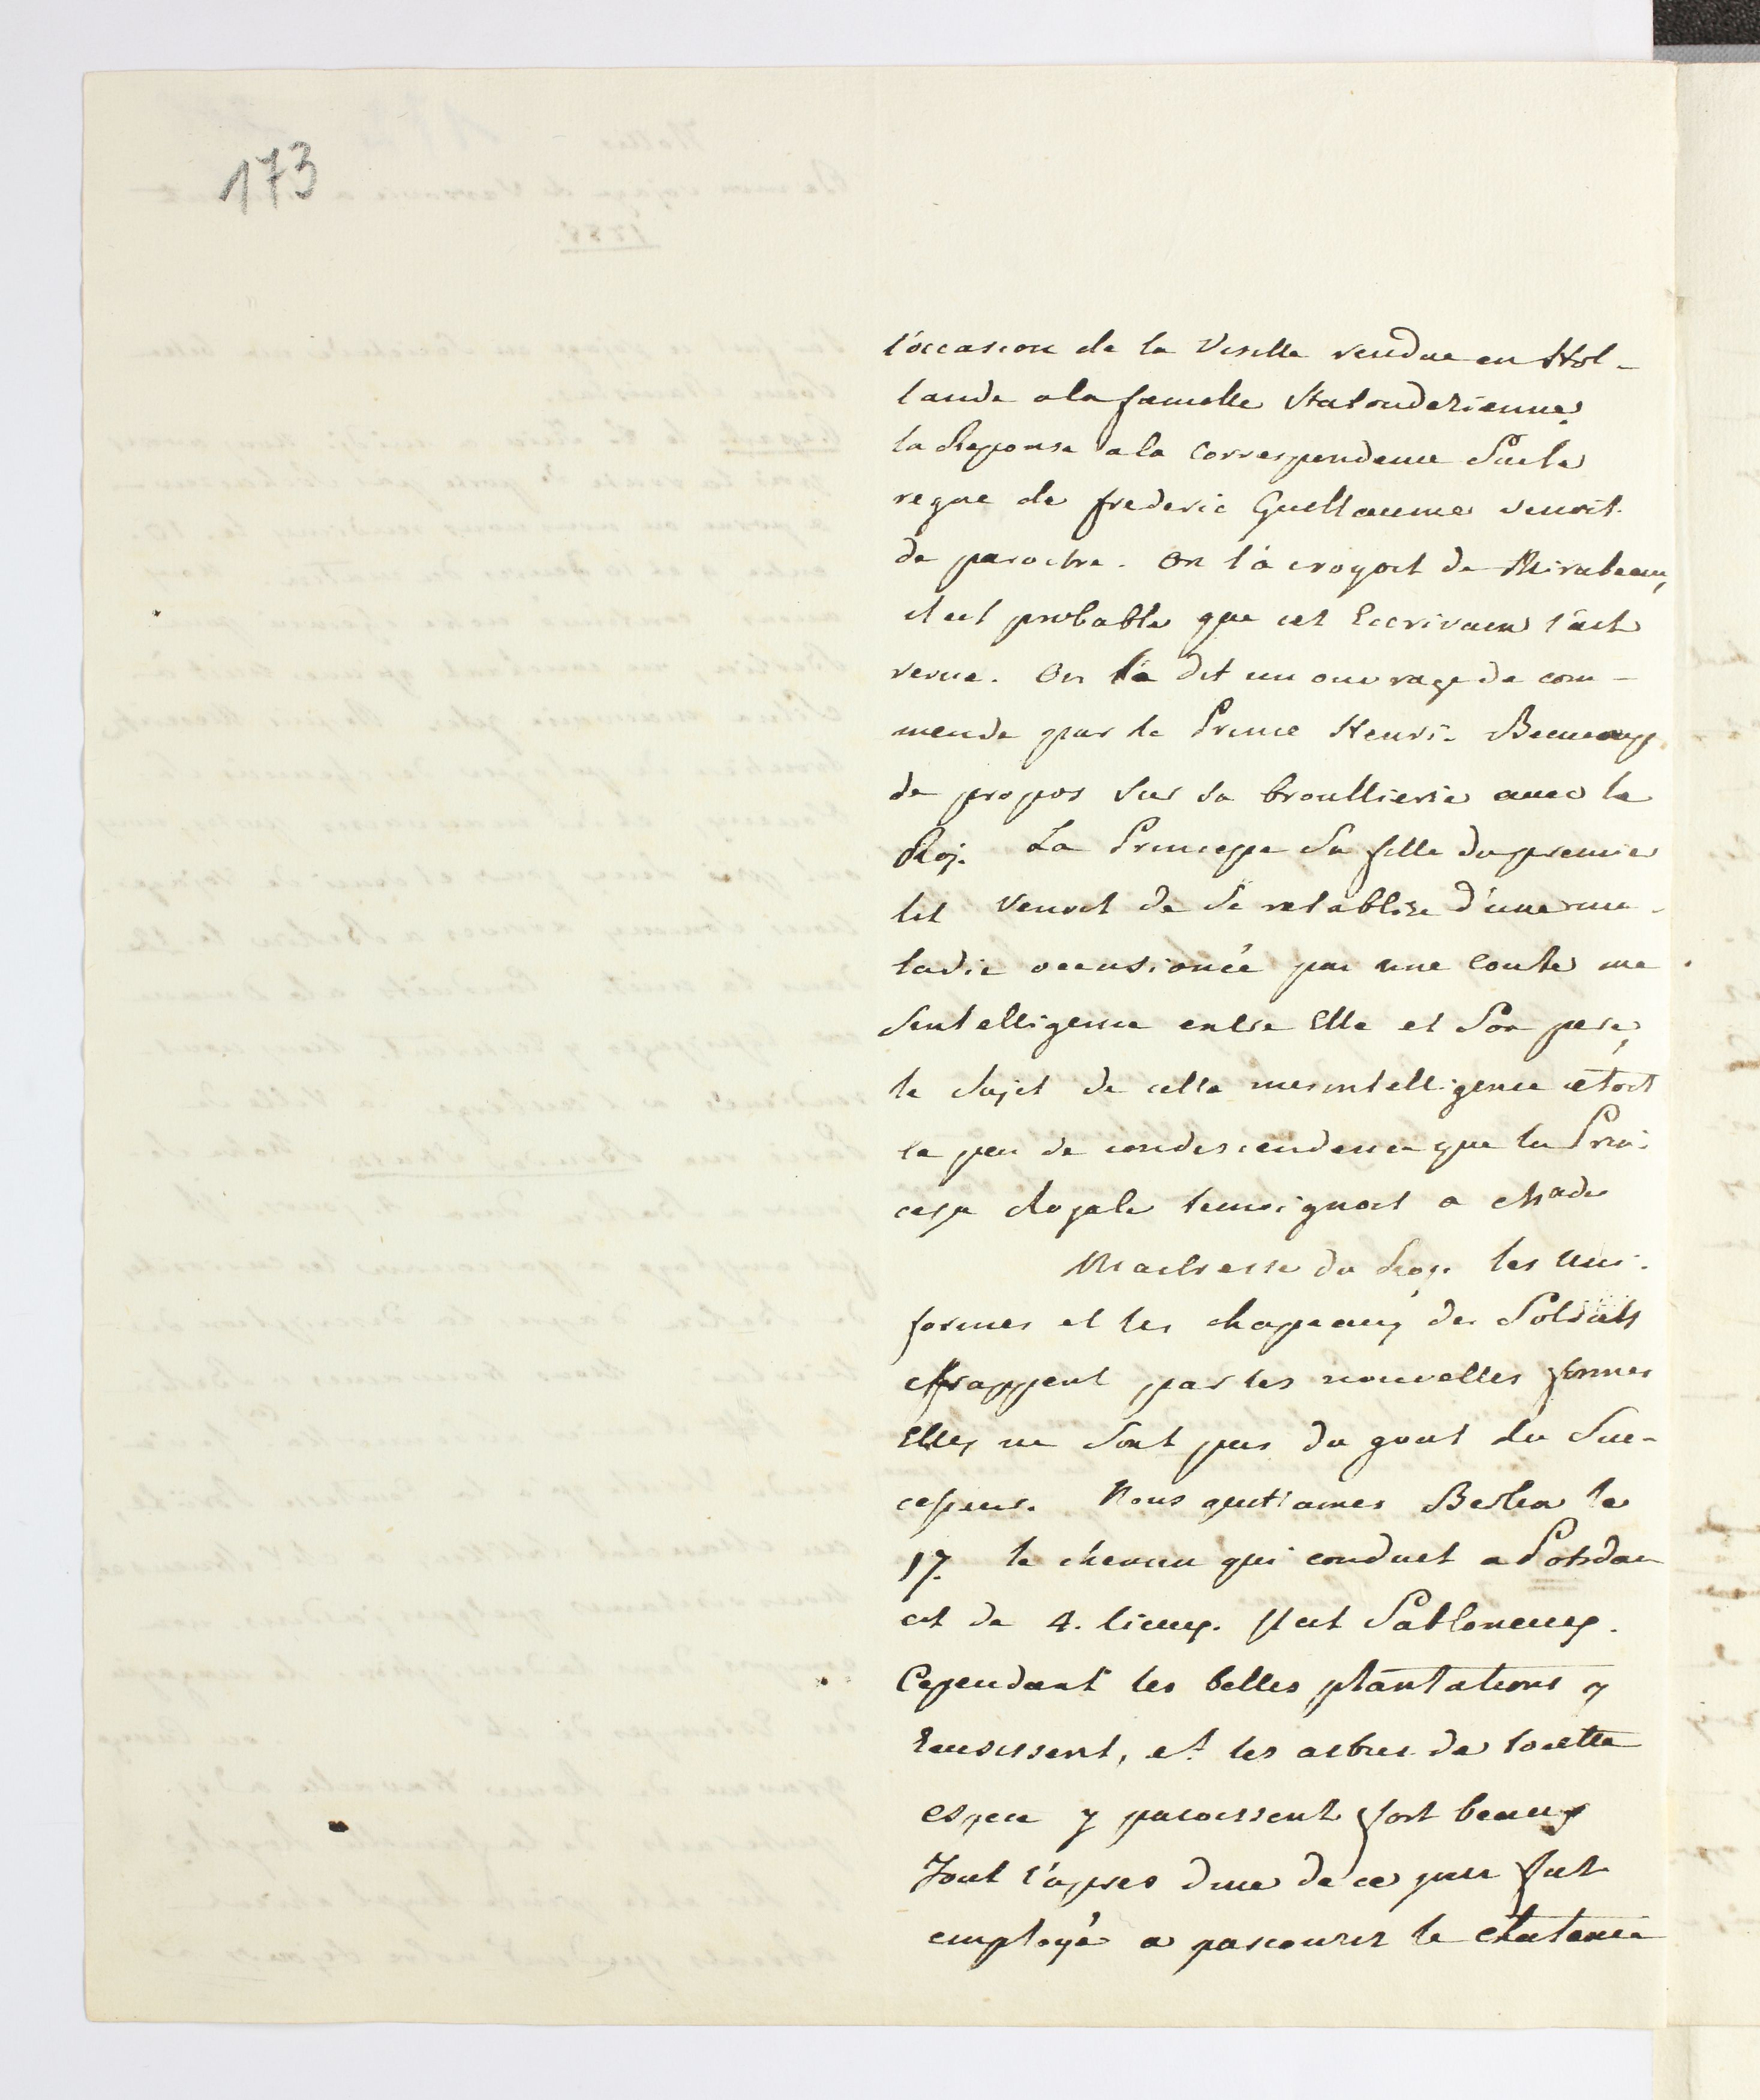 173
l'occasion de la Visitte rendue en Hol-
lande a la famille Statouderienne,
la Reponse a la Correspendence Sur le
regne de frederic Guillaume venoit
de paroitre. On l'a croyoit de Mirabeau,
il est probable que cet Eccrivain l'ait
revue. On l'a dit un ouvrage de com-
mende par le Prince Henri. Beaucoup
de propos sur sa broullierie avec le
Roi. La Princesse Sa fille du premier
lit Venoit de se retablire d'une ma-
ladie occasionée par une Courte me
sintelligence entre Elle et Son pere,
le sujet de cette mesintelligence etoit
le peu de condescendence que la Prin-
cesse Royale temoignoit a Made
Maitresse du Roy. les Uni-
formes et les chapeaux des Soldats
frappent par les nouvelles formes
Elles ne sont pas du gout du Suc-
cesseur. Nous quittames Berlin le
17. le chemin qui conduit a Potsdam
est de 4. lieues. Il est Sabloneux.
Cependant les belles plantations y
reusissent, et les arbres de toutte
espece y paroissent fort beaux
Tout l'apres dine de ce jour fut
employé a parcourir le